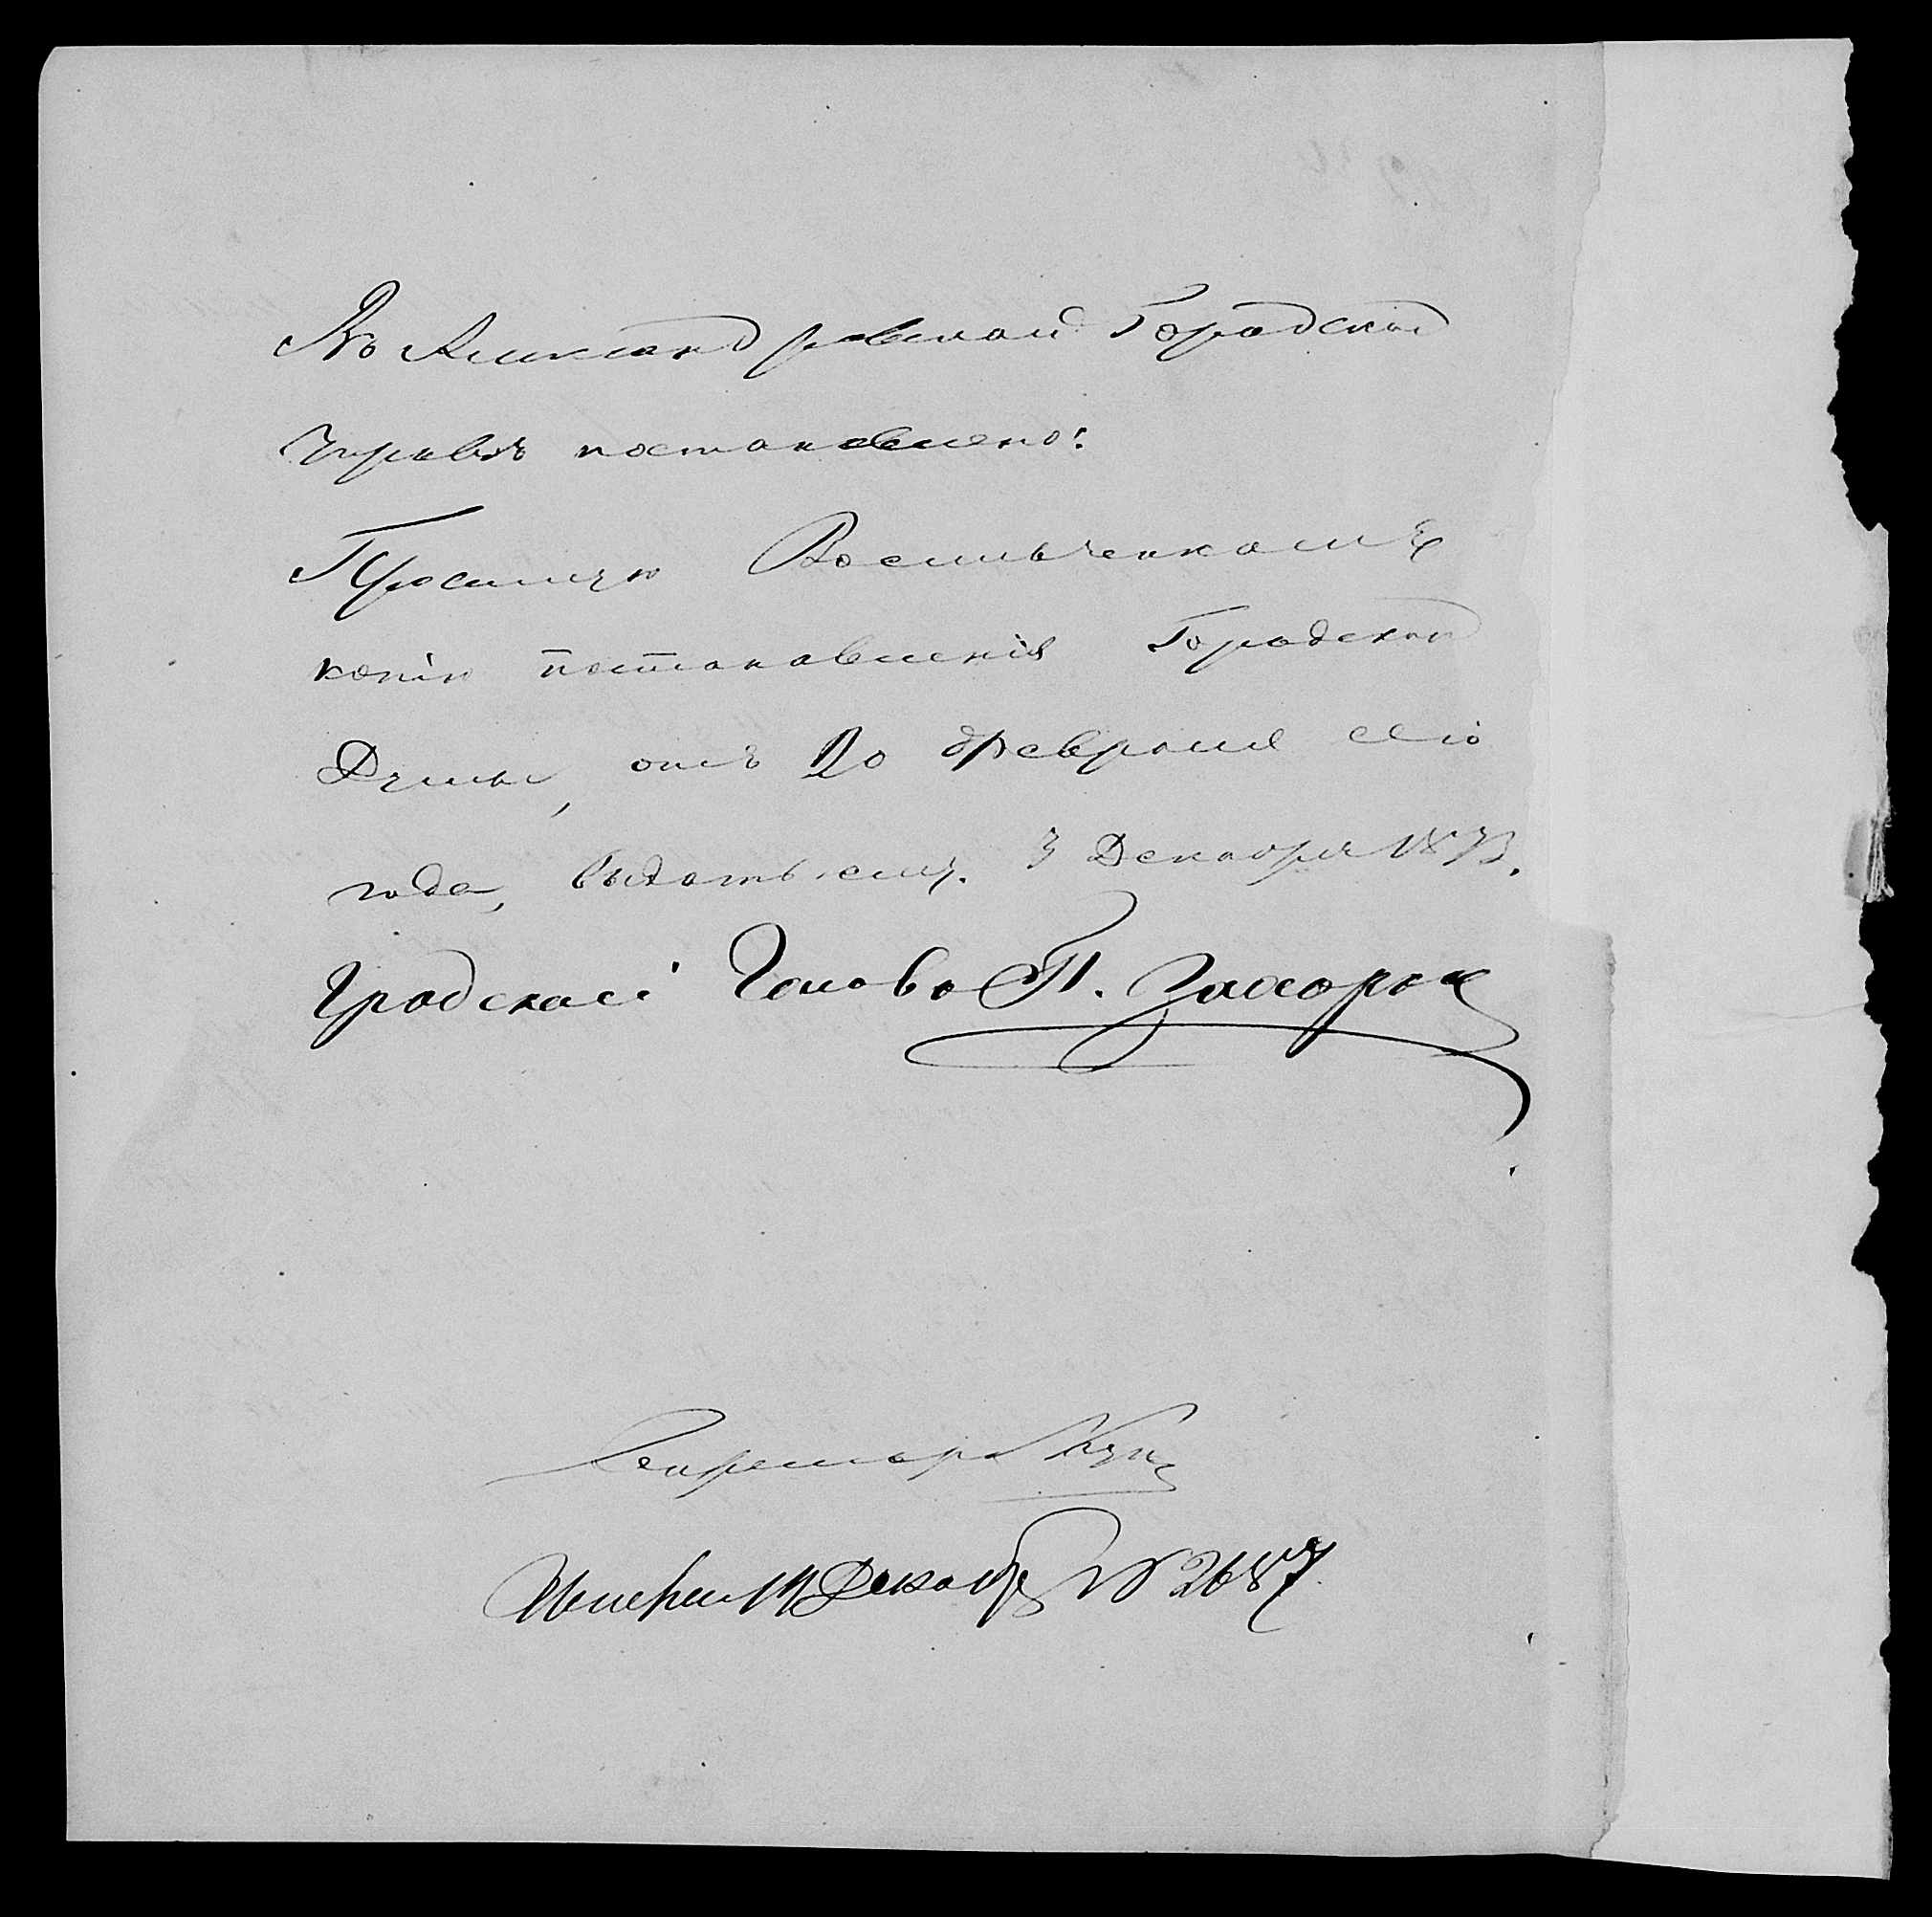 Въ Александровской Городской
Управѣ постановлено:
Просимую Васильченкомъ
копію постановленія Городской
Думы, отъ 20 февраля сего
года, выдать ему. 3 Декабря 1873.
Градскій Голова П. Захарои
Секретарь
Исполнен 14 Декабр № 2687